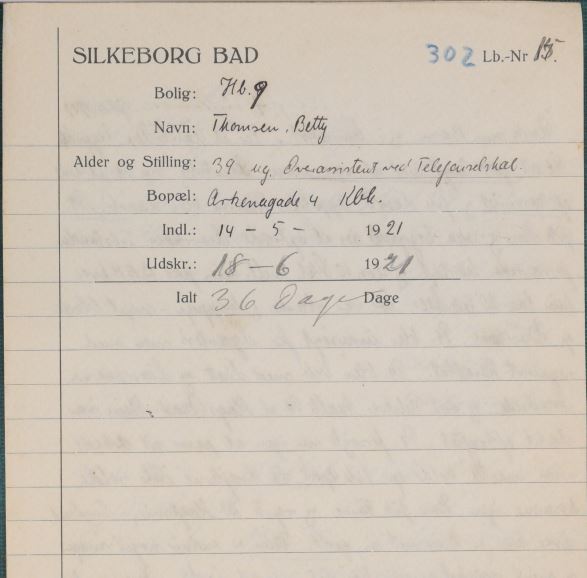 SILKEBORG BAD 302 Lb.-Nr 15.
Bolig: Hb. 9
Navn: Thomsen, Betty
Alder og Stilling: 39 ug. Overassistent ved Telefonselskab.
Bopæl: Arkonagade 4 Kbh.
Indl.: 14 - 5 - 1921
Udskr.: 18 - 6 1921
Ialt 36 Dage Dage